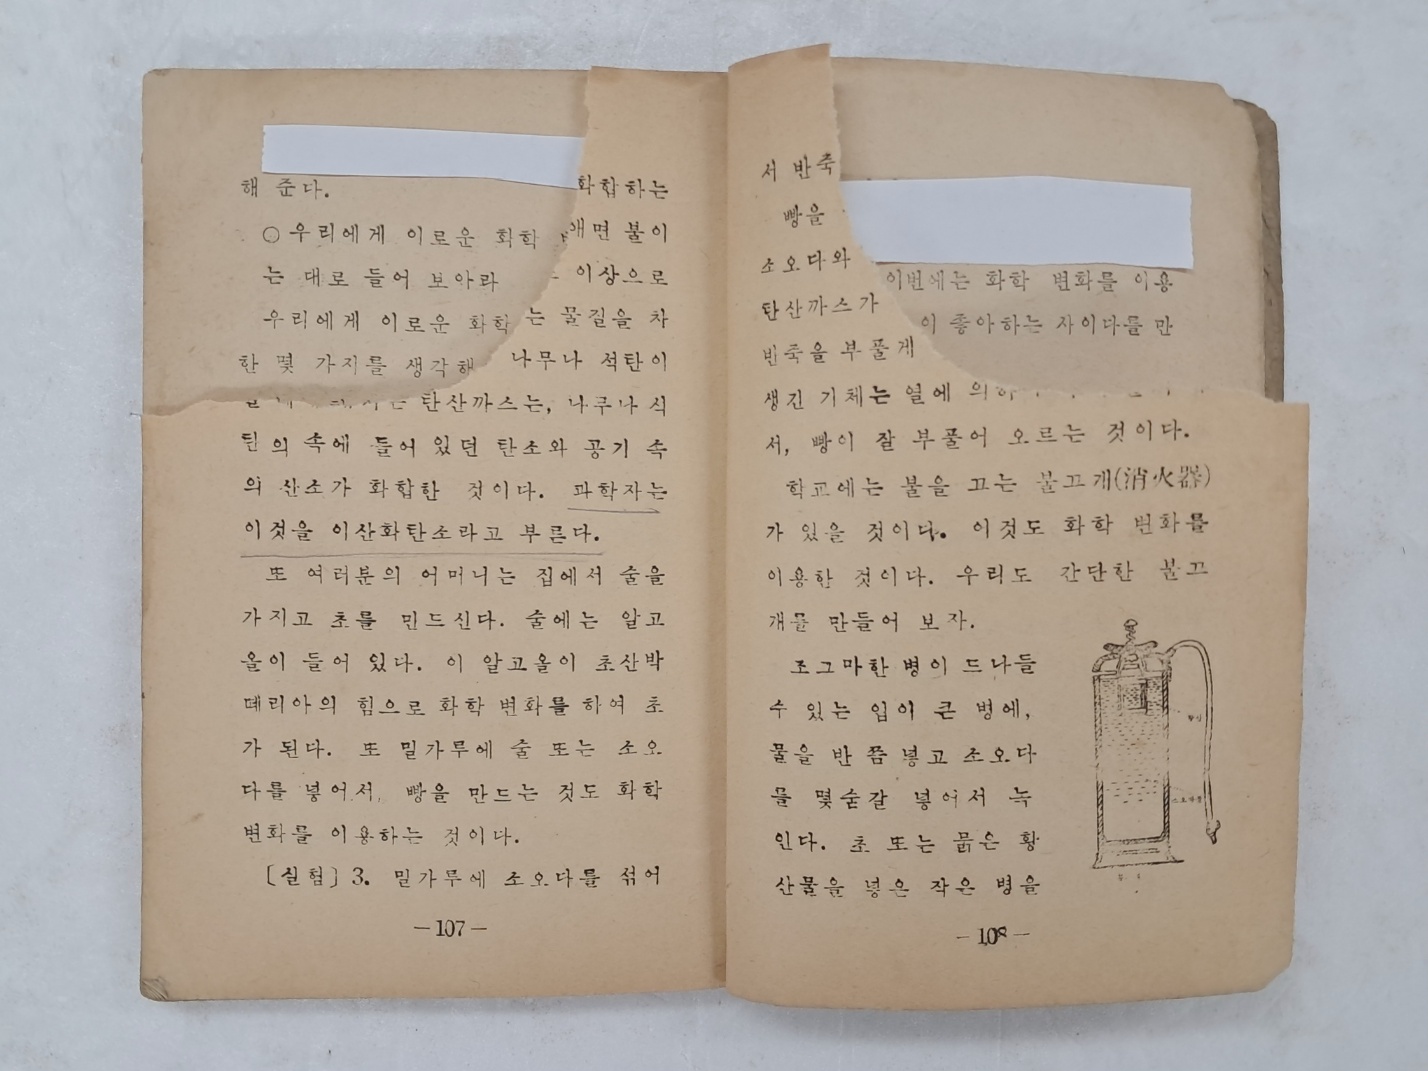 해 준다.
화합하는
○우리에게 이로운 화학
애면 불이
는 대로 들어 보아라
이상으로
우리에게 이로운 화학
는 물질을 차
한 몇 가지를 생각해
나무나 석탄이
탄산까스는, 나무나 석
탄의 속에 들어 있던 탄소와 공기 속
의 산소가 화합한 것이다. 과학자는
이것을 이산화탄소라고 부른다.
또 여러분의 어머니는 집에서 술을
가지고 초를 만드신다. 술에는 알고
올이 들어 있다. 이 알고올이 초산박
떼리아의 힘으로 화학 변화를 하여 초
가 된다. 또 밀가루에 술 또는 소오
다를 넣어서, 빵을 만드는 것도 화학
변화를 이용하는 것이다.
[실험] 3. 밀가루에 소오다를 섞어
－107－
서 반죽
빵을
소오다와
이번에는 화학 변화를 이용
탄산까스가
이 좋아하는 사이다를 만
반죽을 부풀게
생긴 기체는 열에 의하
서, 빵이 잘 부풀어 오르는 것이다.
학교에는 불을 끄는 불끄개(消火器)
가 있을 것이다. 이것도 화학 변화를
이용한 것이다. 우리도 간단한 불끄
개를 만들어 보자.
조그마한 병이 드나들
수 있는 입이 큰 병에,
물을 반 쯤 넣고 소오다
를 몇숟갈 넣어서 녹
인다. 초 또는 묽은 황
산물을 넣은 작은 병을
－108－